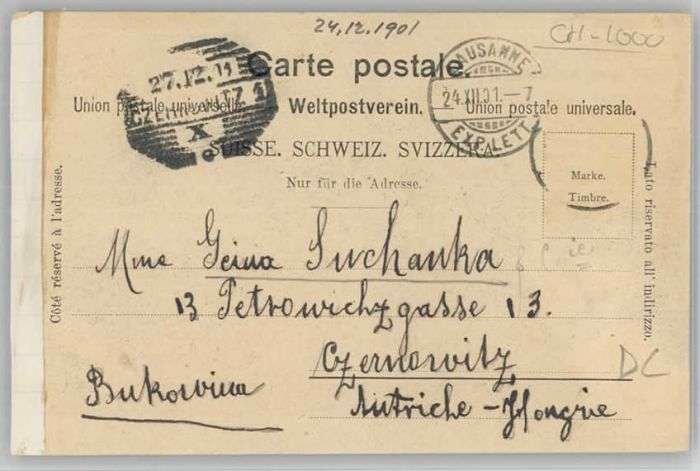 24.12.1901
CH-1000
Carte postale.
LAUSANNE
24.XII.01.-7
EXP. LETT.
27.12.
CZERNOWITZ 1
X
Union postale universelle. Weltpostverein. Union postale universale.
SUISSE. SCHWEIZ. SVIZZERA.
Nur für die Adresse.
Marke.
Timbre.
Côté réservé à l'adresse.
Lato riservato all' indirizzo.
Mme Geina Suchanka
13 Petrowichzgasse 13.
Czernowitz
DC
Bukowina
Autriche-Hongrie